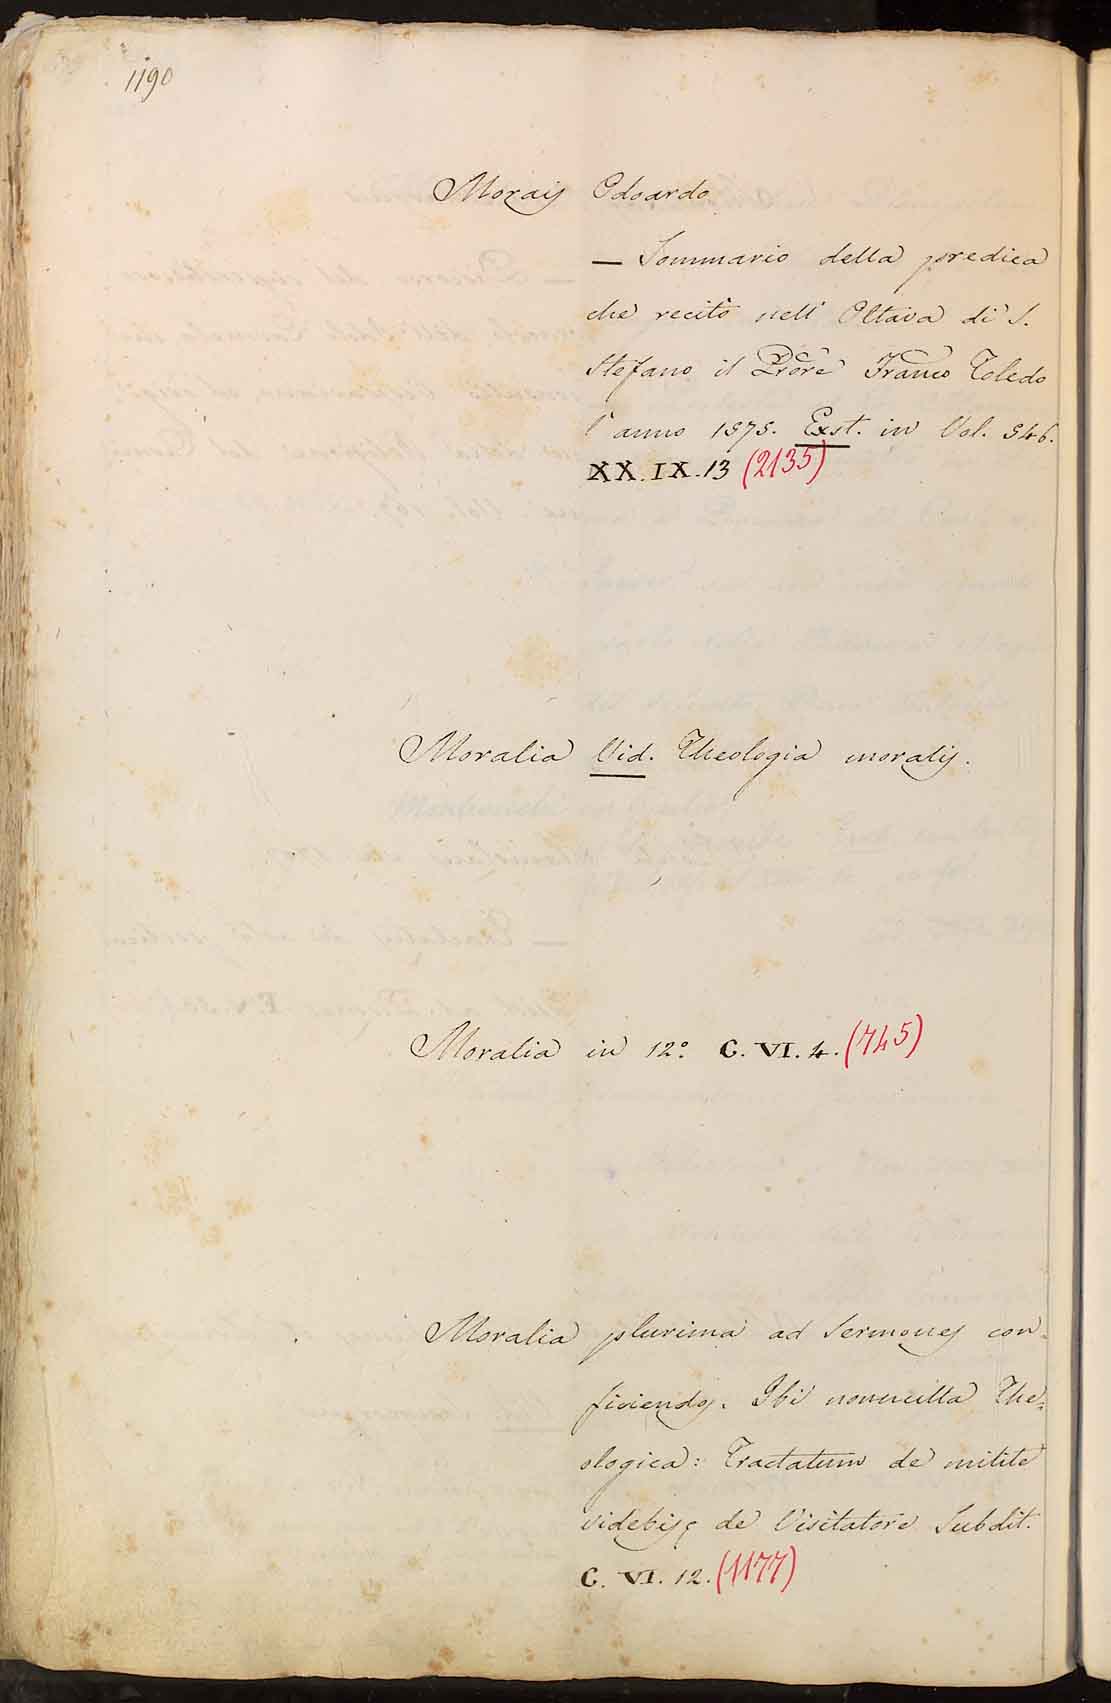 1190
Morais Odoardo
— Sommario della predica
che recitò nell' Ottava di S.
Stefano il Prôrê Franco Toledo
l'anno 1575. Exst. in Vol. 546.
XX.IX.13 (2135)
Moralia Vid. Theologia moralis.
Moralia in 12º. C. VI. 4. (745)
Moralia plurima ad Sermones con-
ficiendos. Ibi nonnulla The-
ologica: Tractatum de milite
videbis, de Visitatore Subdit.
C. VI. 12. (1177)